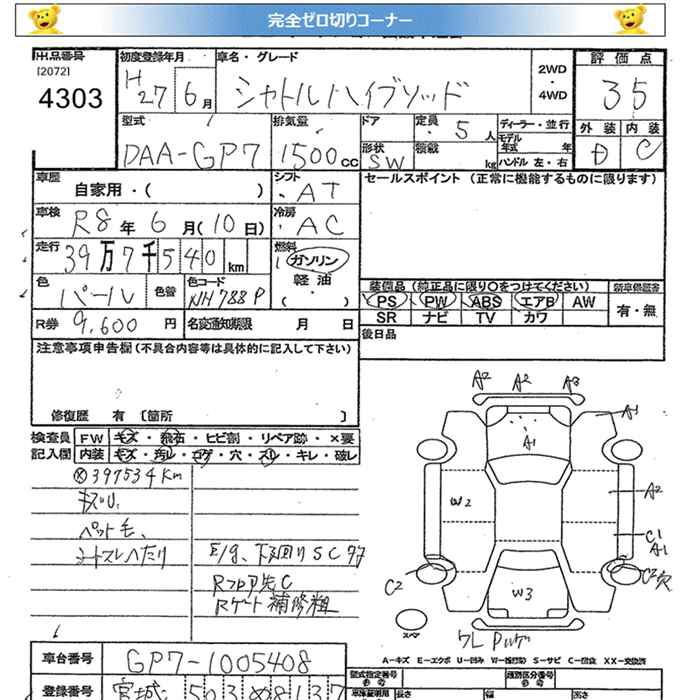 完全ゼロ切りコーナー
出品番号
[2072]
4303
初度登録年月
H27年6月
車名・グレード
シャトルハイブリッド
2WD
・
4WD
評価点
35
外装 内装
D C
型式
DAA-GP7
排気量
1500cc
ドア
形状
SW
定員 5人
積載 kg
ディーラー・並行
モデル年式 年
ハンドル 左・右
車歴
自家用・( )
シフト
・AT
セールスポイント (正常に機能するものに限ります)
車検
R8年6月(10日)
冷房
・AC
走行
39万7千540km
燃料
ガソリン
軽油
(・)
色
パール
色替
色コード
NH788P
装備品 (純正品に限り○をつけてください)
PS PW ABS エアB AW
SR ナビ TV カワ
新車保証書
有・無
R券 9,600円
名変通知期限 月 日
後日品
注意事項申告欄 (不具合内容等は具体的に記入して下さい)
修復歴 有 [箇所 ]
検査員
記入欄
FW キズ・飛石・ヒビ割・リペア跡・×要
内装 キズ・汚レ・コゲ・穴・スリ・キレ・破レ
397534Km
キズU.
ペット毛、
シートスレヘたり
E/g、下廻りSCサビ
Rフロア先C
Rゲート補修粗
A2 A2 A3
A1
A1
W2
A2
C1
A1
C2
C2穴
W3
スペア
A-キズ E-エクボ U-凹み W-補修跡 S-サビ C-腐食 XX-交換済
車台番号
GP7-1005408
登録番号
宮城 503
型式指定番号
参考
類別区分番号
参考
長さ
幅
高さ